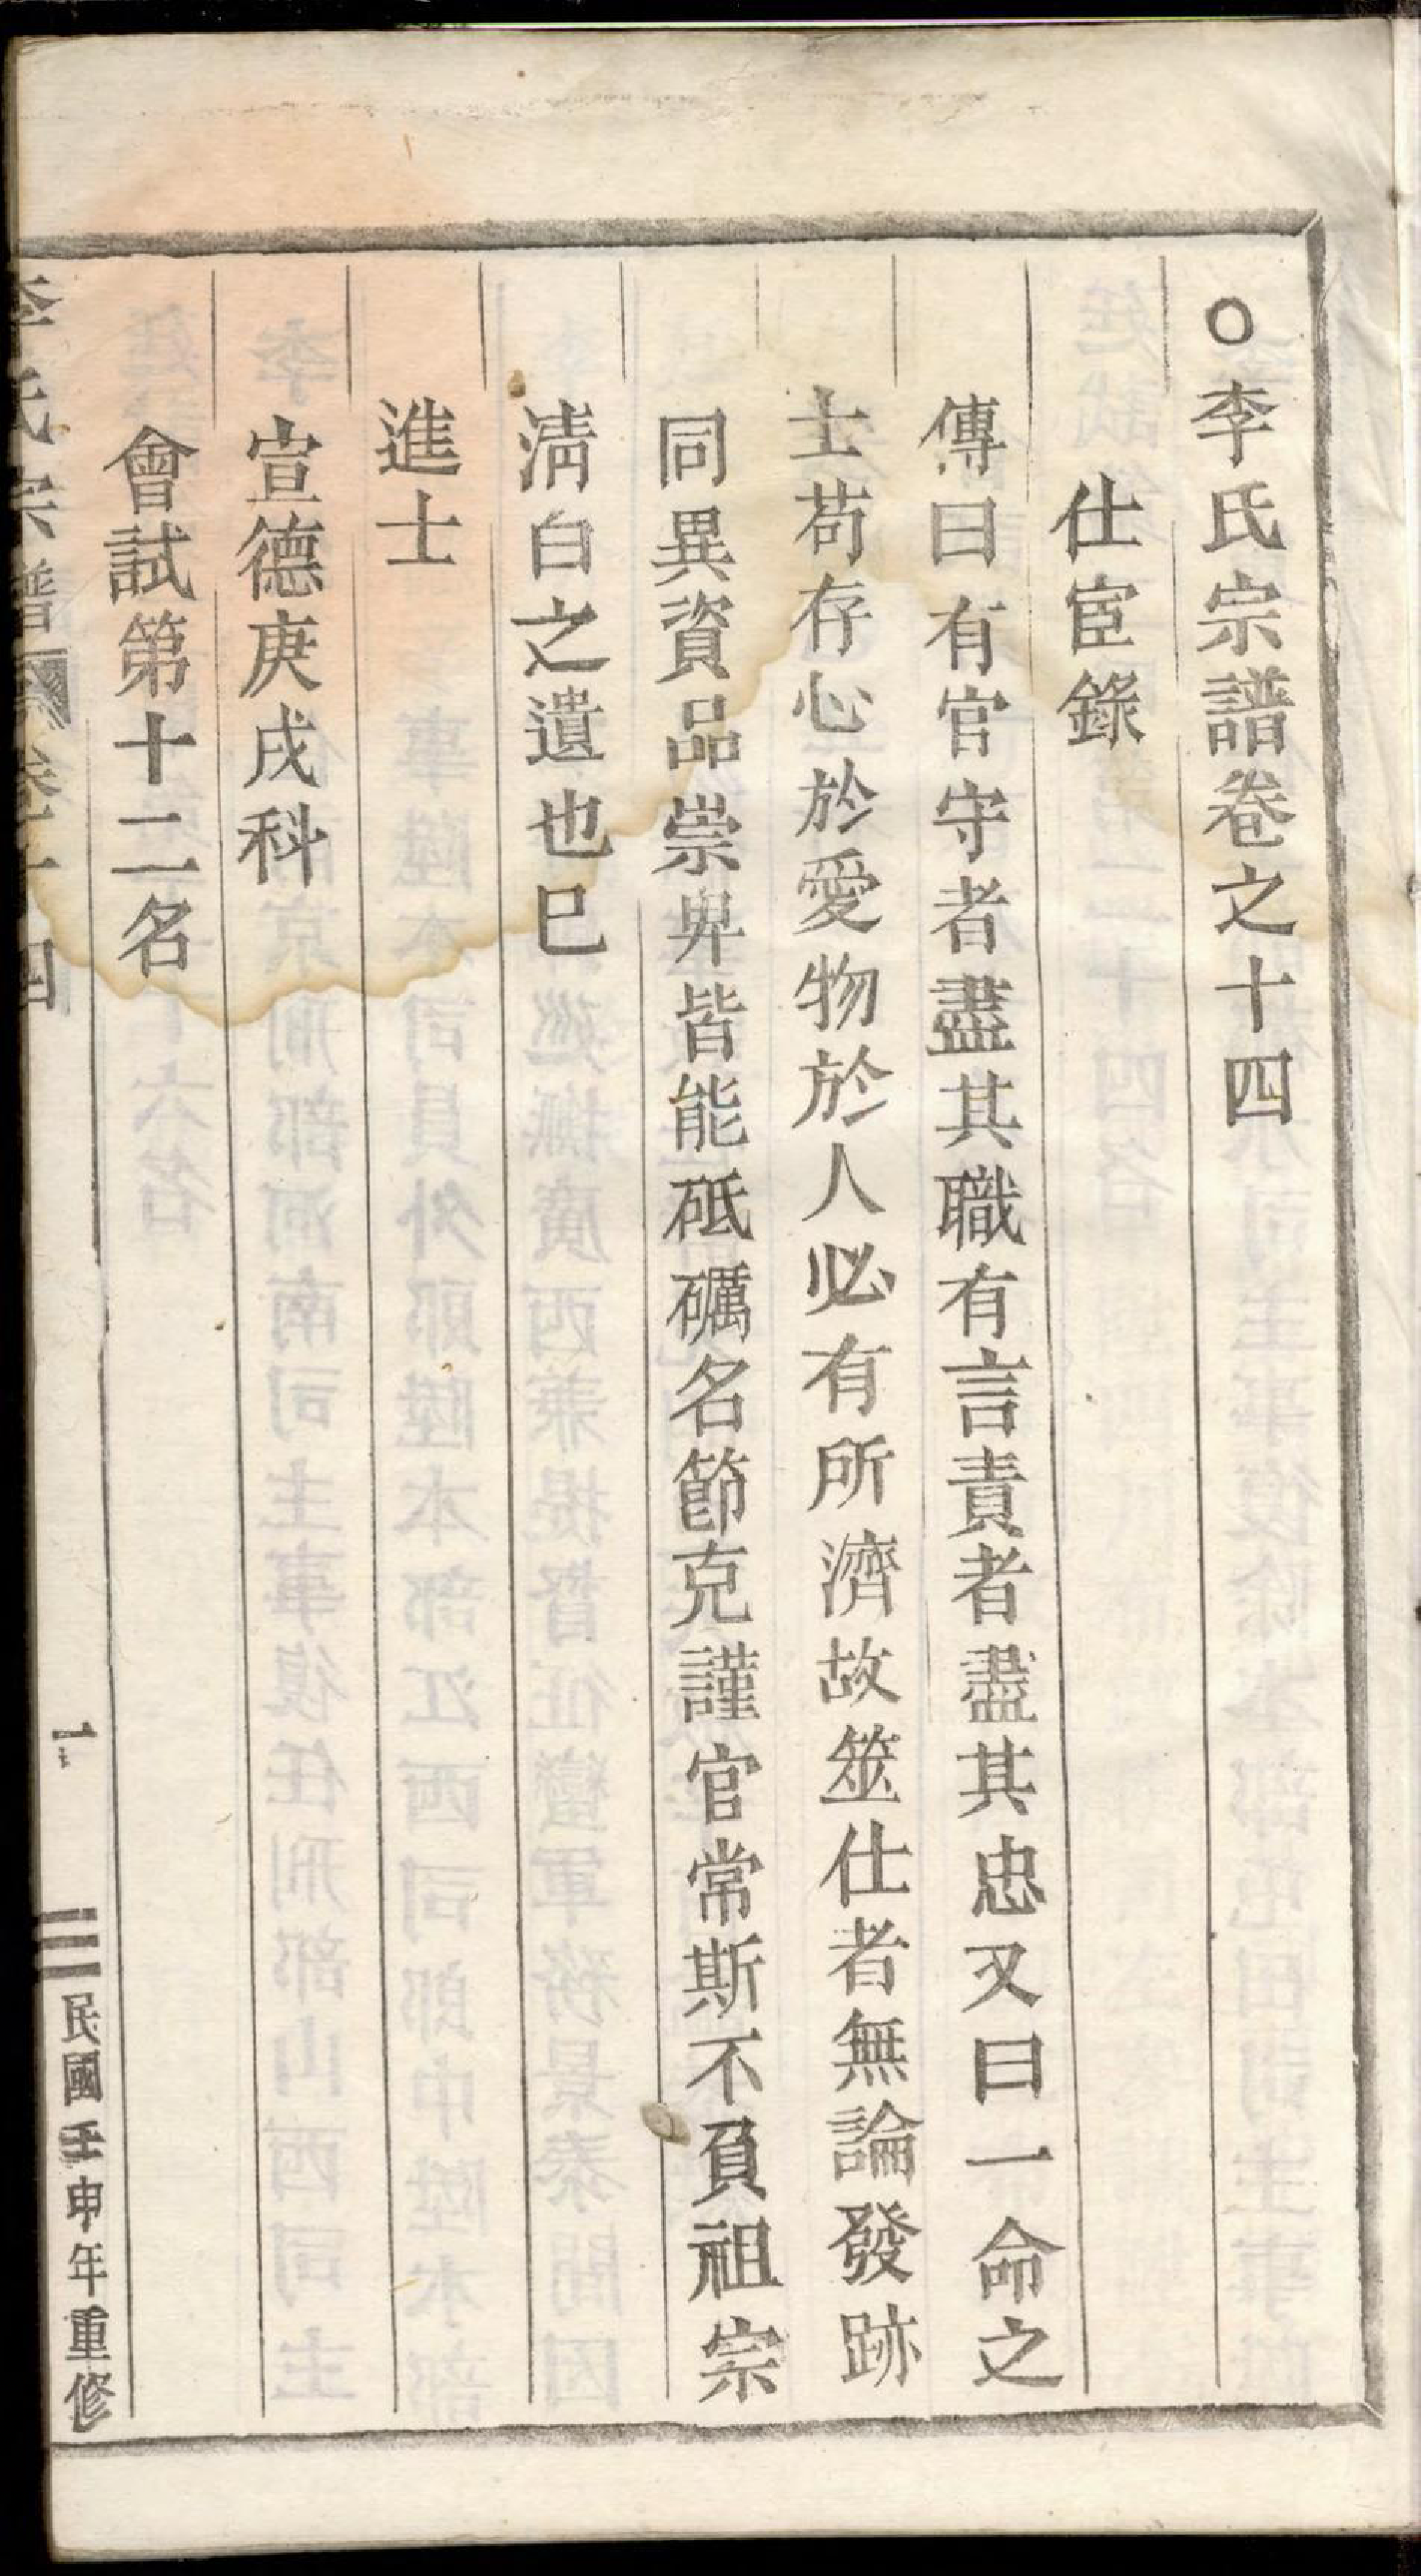 ○李氏宗譜卷之十四
仕宦錄
傳曰有官守者盡其職有言責者盡其忠又曰一命之
士苟存心於愛物於人必有所濟故筮仕者無論發跡
同異資品崇卑皆能砥礪名節克謹官常斯不負祖宗
淸白之遺也已
進士
宣德庚戌科
會試第十二名
李氏宗譜 卷十四 一 民國壬申年重修